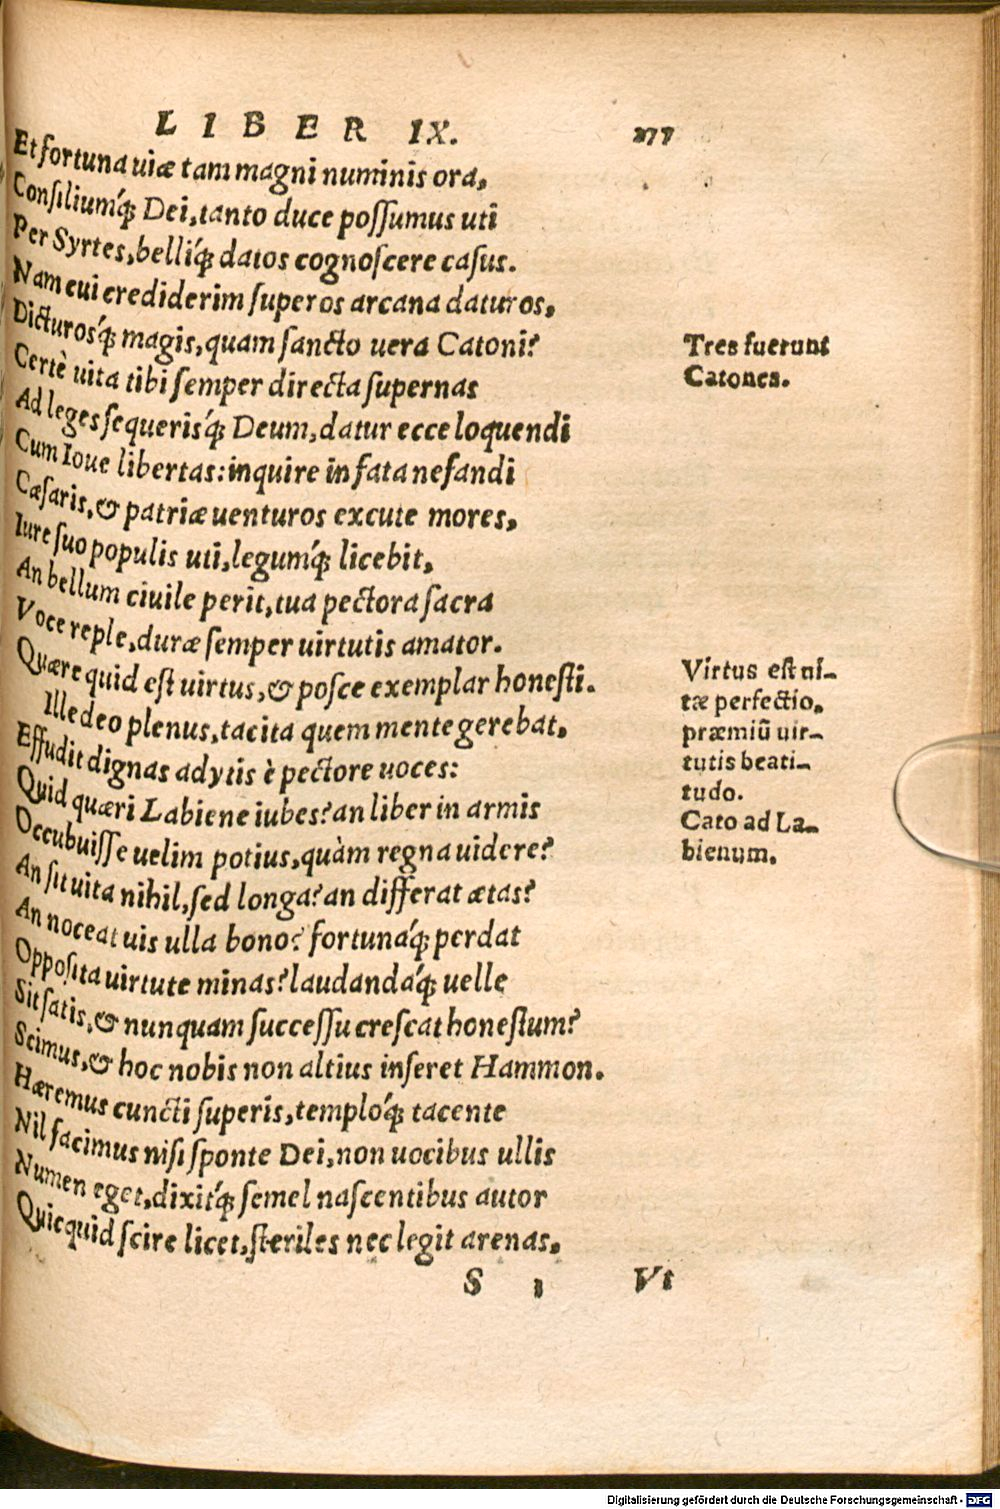 LIBER IX. 277
Et fortuna uiæ tam magni numinis ora,
Consiliumq́; Dei, tanto duce possumus uti
Per Syrtes, belliq́; datos cognoscere casus.
Nam cui crediderim superos arcana daturos,
Dicturosq́; magis, quam sancto uera Catoni?
Certè uita tibi semper directa supernas
Ad leges sequerisq́; Deum, datur ecce loquendi
Cum Ioue libertas: inquire in fata nefandi
Cæsaris, & patriæ uenturos excute mores,
Iure suo populis uti, legumq́; licebit,
An bellum ciuile perit, tua pectora sacra
Voce reple, duræ semper uirtutis amator.
Quære quid est uirtus, & posce exemplar honesti.
Ille deo plenus, tacita quem mente gerebat,
Effudit dignas adytis è pectore uoces:
Quid quæri Labiene iubes? an liber in armis
Occubuisse uelim potius, quàm regna uidere?
An sit uita nihil, sed longa? an differat ætas?
An noceat uis ulla bono? fortunaq́; perdat
Opposita uirtute minas? laudandaq́; uelle
Sit satis, & nunquam successu crescat honestum?
Scimus, & hoc nobis non altius inseret Hammon.
Hæremus cuncti superis, temploq́; tacente
Nil facimus nisi sponte Dei, non uocibus ullis
Numen eget, dixitq́; semel nascentibus autor
Quicquid scire licet, steriles nec legit arenas,
S 1 Vt
Tres fuerunt
Catones.
Virtus est ui-
tæ perfectio,
præmiũ uir-
tutis beati-
tudo.
Cato ad La-
bienum.
Digitalisierung gefördert durch die Deutsche Forschungsgemeinschaft - DFG